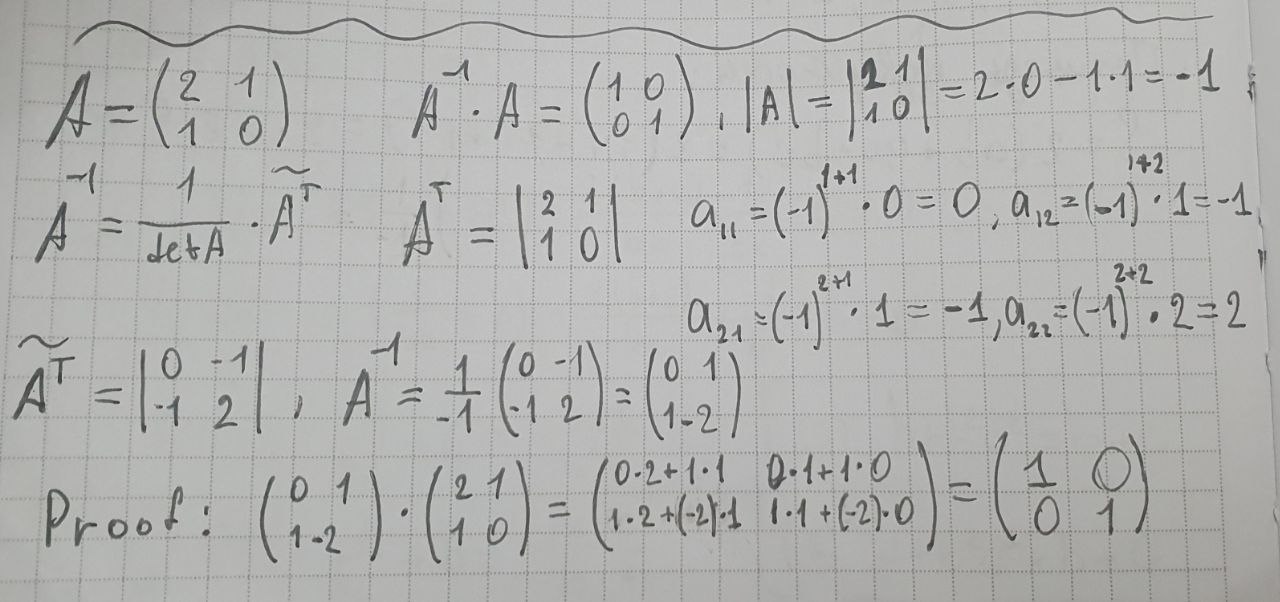 A = (2 1 / 1 0) A⁻¹ · A = (1 0 / 0 1), |A| = |2 1 / 1 0| = 2·0 − 1·1 = -1
A⁻¹ = 1/detA · Ã^T A^T = |2 1 / 1 0| a₁₁ = (-1)^(1+1) · 0 = 0, a₁₂ = (-1)^(1+2) · 1 = -1
a₂₁ = (-1)^(2+1) · 1 = -1, a₂₂ = (-1)^(2+2) · 2 = 2
Ã^T = |0 -1 / -1 2|, A⁻¹ = 1/-1 (0 -1 / -1 2) = (0 1 / 1 -2)
Proof: (0 1 / 1 -2) · (2 1 / 1 0) = (0·2+1·1 0·1+1·0 / 1·2+(-2)·1 1·1+(-2)·0) = (1 0 / 0 1)